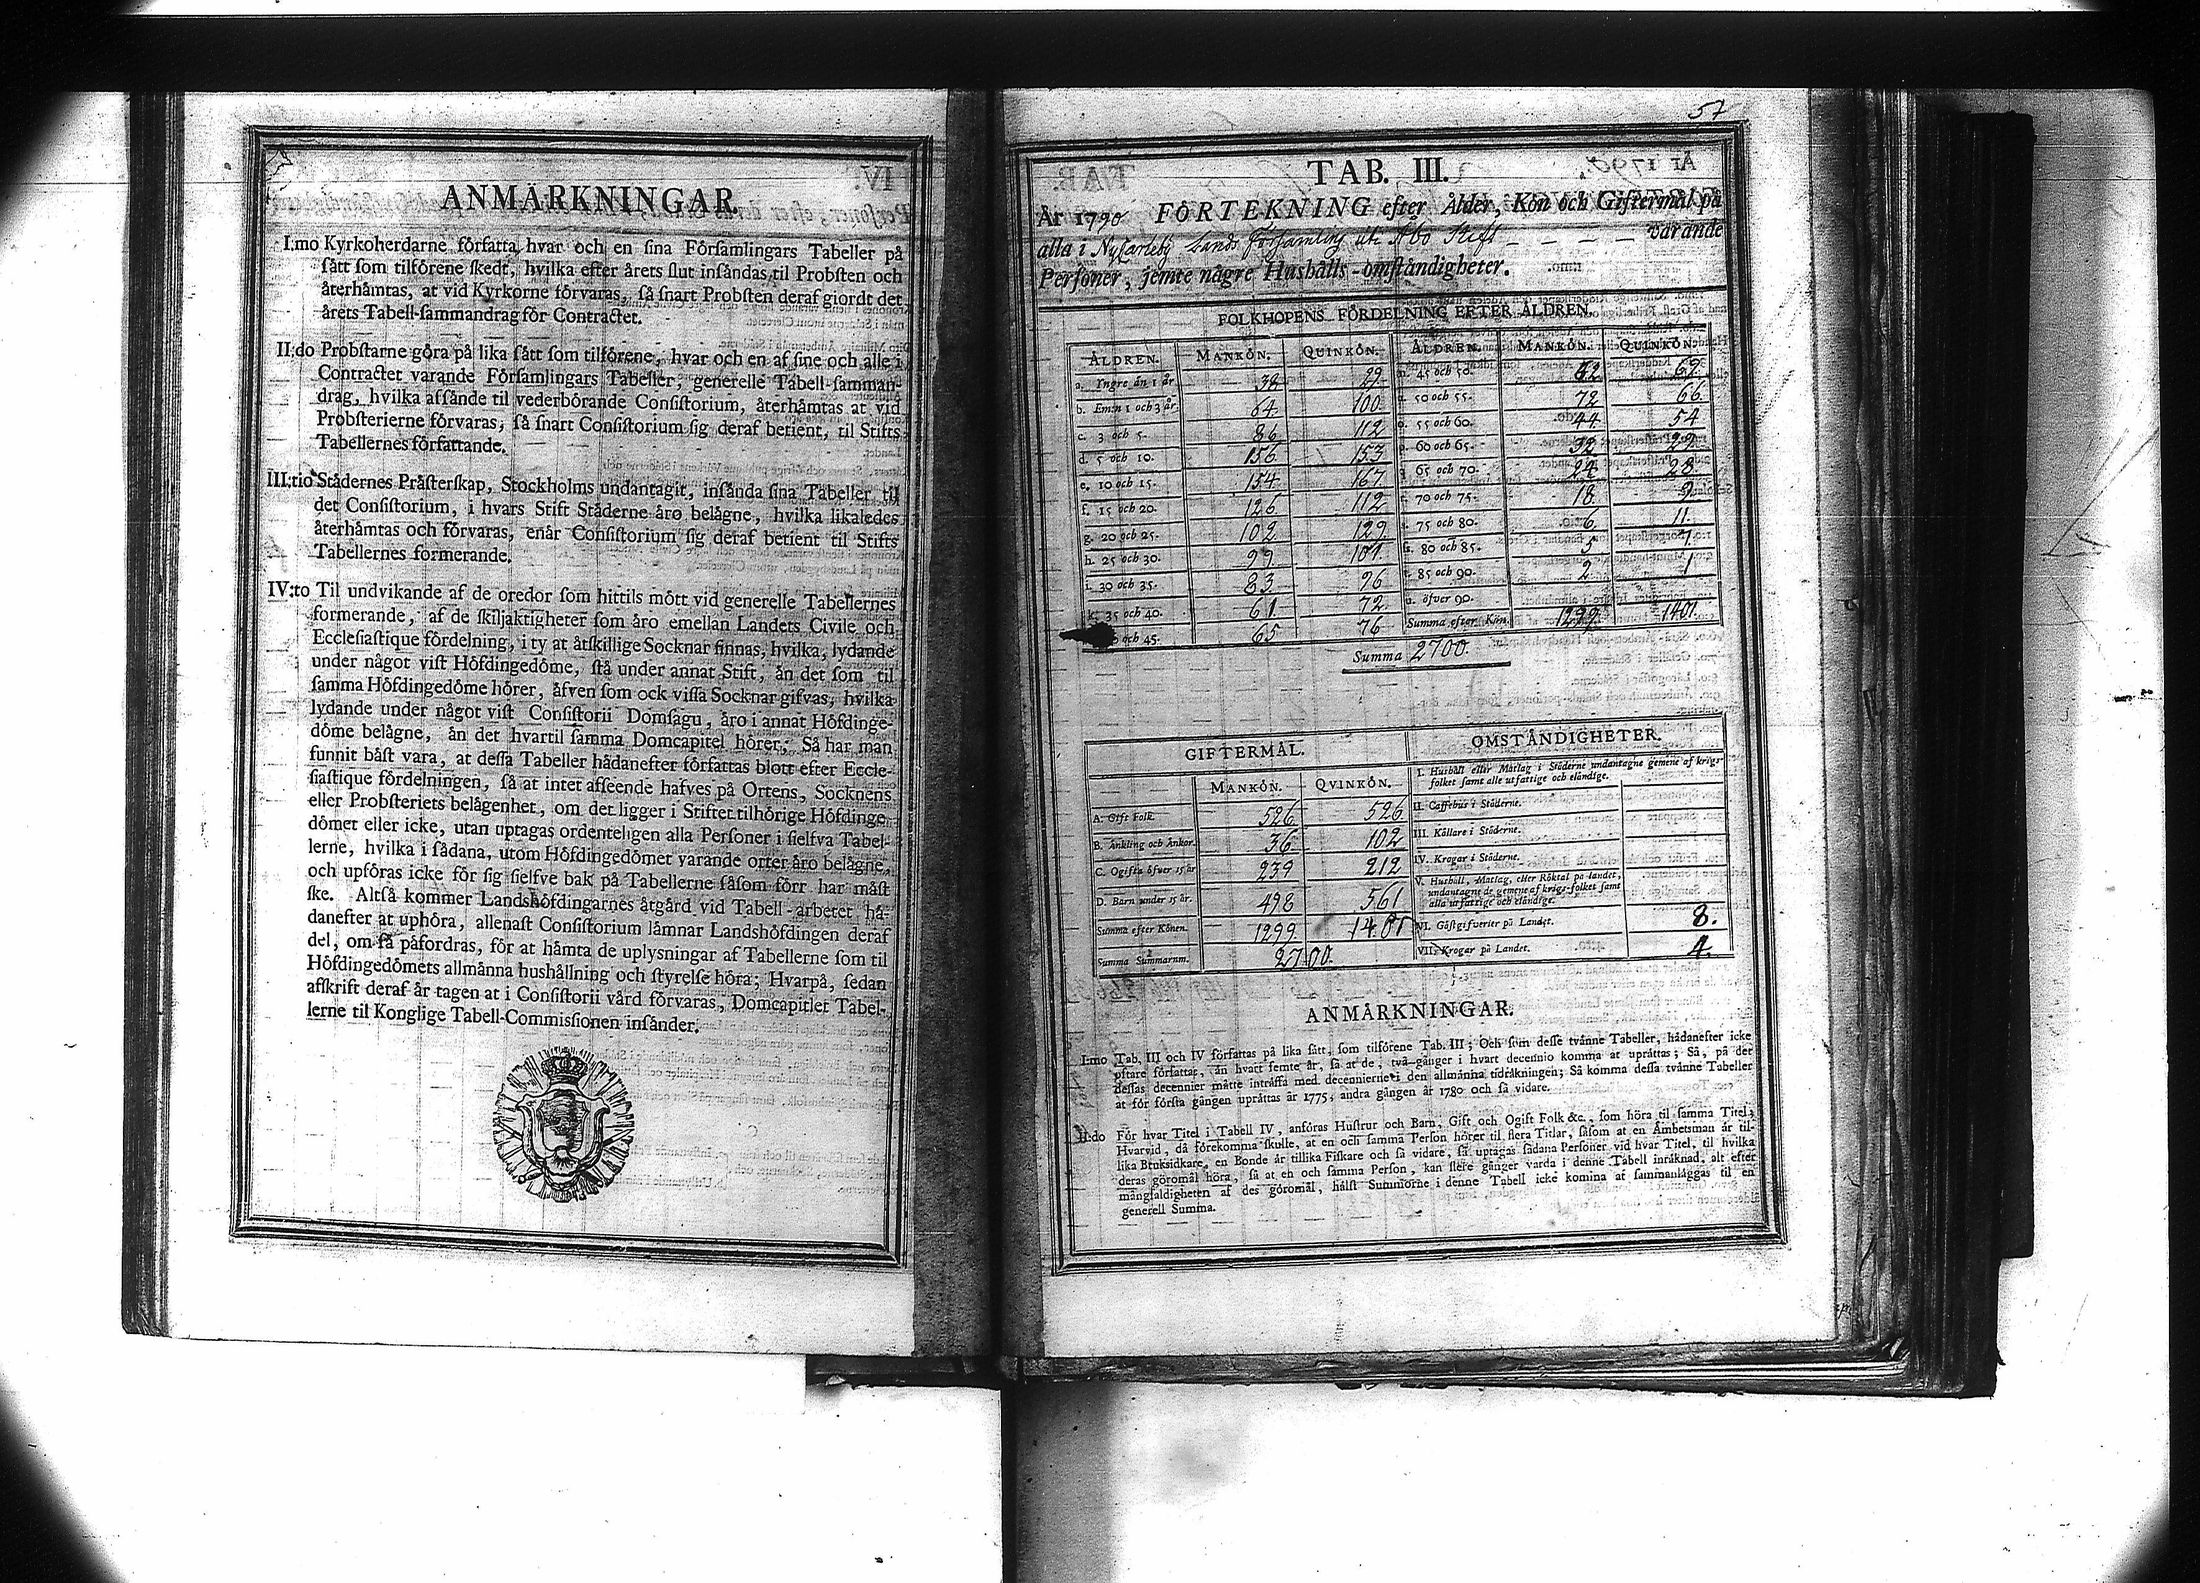 ANMÄRKNINGAR.
I.mo Kyrkoherdarne författa hvar och en sina Församlingars Tabeller på
sätt som tilförene skedt, hvilka efter årets slut insändas til Probsten och
återhämtas, at vid Kyrkorne förvaras, så snart Probsten deraf giordt det
årets Tabell-sammandrag för Contractet.
II:do Probstarne göra på lika sätt som tilförene, hvar och en af sine och alle i
Contractet varande Församlingars Tabeller, generelle Tabell-samman-
drag, hvilka afsände til vederbörande Consistorium, återhämtas at vid
Probsterierne förvaras, så snart Consistorium sig deraf betient, til Stifts
Tabellernes författande.
III:tio Städernes Prästerskap, Stockholms undantagit, insända sina Tabeller til
det Consistorium, i hvars Stift Städerne äro belägne, hvilka likaledes
återhämtas och förvaras, enär Consistorium sig deraf betient til Stifts
Tabellernes formerande.
IV:to Til undvikande af de oredor som hittils mött vid generelle Tabellernes
formerande, af de skiljaktigheter som äro emellan Landets Civile och
Ecclesiastique fördelning, i ty at åtskillige Socknar finnas, hvilka, lydande
under något vist Höfdingedöme, stå under annat Stift, än det som til
samma Höfdingedöme hörer, äfven som ock vissa Socknar gifvas, hvilka
lydande under något vist Consistorii Domsagu, äro i annat Höfdinge-
döme belägne, än det hvartil samma Domcapitel hörer; Så har man
funnit bäst vara, at dessa Tabeller hädanefter författas blott efter Eccle-
siastique fördelningen, så at intet afseende hafves på Ortens, Socknens
eller Probsteriets belägenhet, om det ligger i Stiftet tilhörige Höfdinge-
dömet eller icke, utan uptagas ordenteligen alla Personer i sielfva Tabel-
lerne, hvilka i sådana, utom Höfdingedömet varande orter äro belägne,
och upföras icke för sig sielfve bak på Tabellerne såsom förr har måst
ske. Altså kommer Landshöfdingarnes åtgärd vid Tabell-arbetet hä-
danefter at uphöra, allenast Consistorium lämnar Landshöfdingen deraf
del, om så påfordras, för at hämta de uplysningar af Tabellerne som til
Höfdingedömets allmänna hushållning och styrelse höra; Hvarpå, sedan
afskrift deraf är tagen at i Consistorii vård förvaras, Domcapitlet Tabel-
lerne til Konglige Tabell-Commissionen insänder.
57
TAB. III.
År 1790 FÖRTEKNING efter Ålder, Kön och Giftermål på
alla i Nykarleby Lands Församling uti Åbo Stift varande
Personer, jemte några Hushålls-omständigheter.
FOLKHOPENS FÖRDELNING EFTER ÅLDREN.
ÅLDREN. MANKÖN. QUINKÖN. ÅLDREN. MANKÖN. QUINKÖN.
a. Yngre än 1 år 38 29 45 och 50. 62 69
b. Emin 1 och 3 år. 64 100 50 och 55. 72 66
c. 3 och 5. 86 112 o. 55 och 60. 44 54
d. 5 och 10. 156 153 p. 60 och 65. 32
e. 10 och 15. 154 167 q. 65 och 70. 24 28
f. 15 och 20. 126 112 r. 70 och 75. 18 9
g. 20 och 25. 102 129 75 och 80. 6 11
h. 25 och 30. 99 101 80 och 85. 5
i. 30 och 35. 83 96 85 och 90. 2 1
k. 35 och 40. 61 72 u. öfver 90.
och 45. 65 76 Summa efter Kön. 1299 1401
Summa 2700.
GIFTERMÅL. OMSTÄNDIGHETER.
MANKÖN. QVINKÖN.
A. Gift Folk. 526 526
B. Änkling och Änkor. 36 102
C. Ogifta öfver 15 år 239 212
D. Barn under 15 år. 498 561
Summa efter Könen. 1299 1401
Summa Summarum. 2700.
I. Hushåll eller Matlag i Städerne undantagne gemene af krigs-
folket samt alle utfattige och eländige.
II. Caffehus i Städerne.
III. Källare i Städerne.
IV. Krogar i Städerne.
V. Hushåll, Matlag, eller Röktal på landet,
undantagne de gemene af krigs-folket samt
alla utfattige och eländige.
VI. Gästgifverier på Landet. 8.
VII. Krogar på Landet. 4.
ANMÄRKNINGAR.
I:mo Tab. III och IV författas på lika sätt, som tilförene Tab. III; Och som desse tvänne Tabeller, hädanefter icke
oftare författas, än hvart femte år, så at de, två gånger i hvart decennio komma at uprättas; Så, på det
dessas decennier måtte inträffa med decennierne i den allmänna tidräkningen; Så komma dessa tvänne Tabeller
at för första gången uprättas år 1775; andra gången år 1780 och så vidare.
II:do För hvar Titel i Tabell IV, anföras Hustrur och Barn, Gift och Ogift Folk &c., som höra til samma Titel;
Hvarvid, då förekomma skulle, at en och samma Person hörer til flera Titlar, såsom at en Ämbetsman är til-
lika Bruksidkare, en Bonde är tillika Fiskare och så vidare, så uptagas sådana Personer vid hvar Titel, til hvilka
deras göromål höra, så at en och samma Person, kan flere gånger varda i denne Tabell inräknad, alt efter
mångfaldigheten af des göromål, hälst Summorne i denne Tabell icke komma at sammanläggas til en
generell Summa.